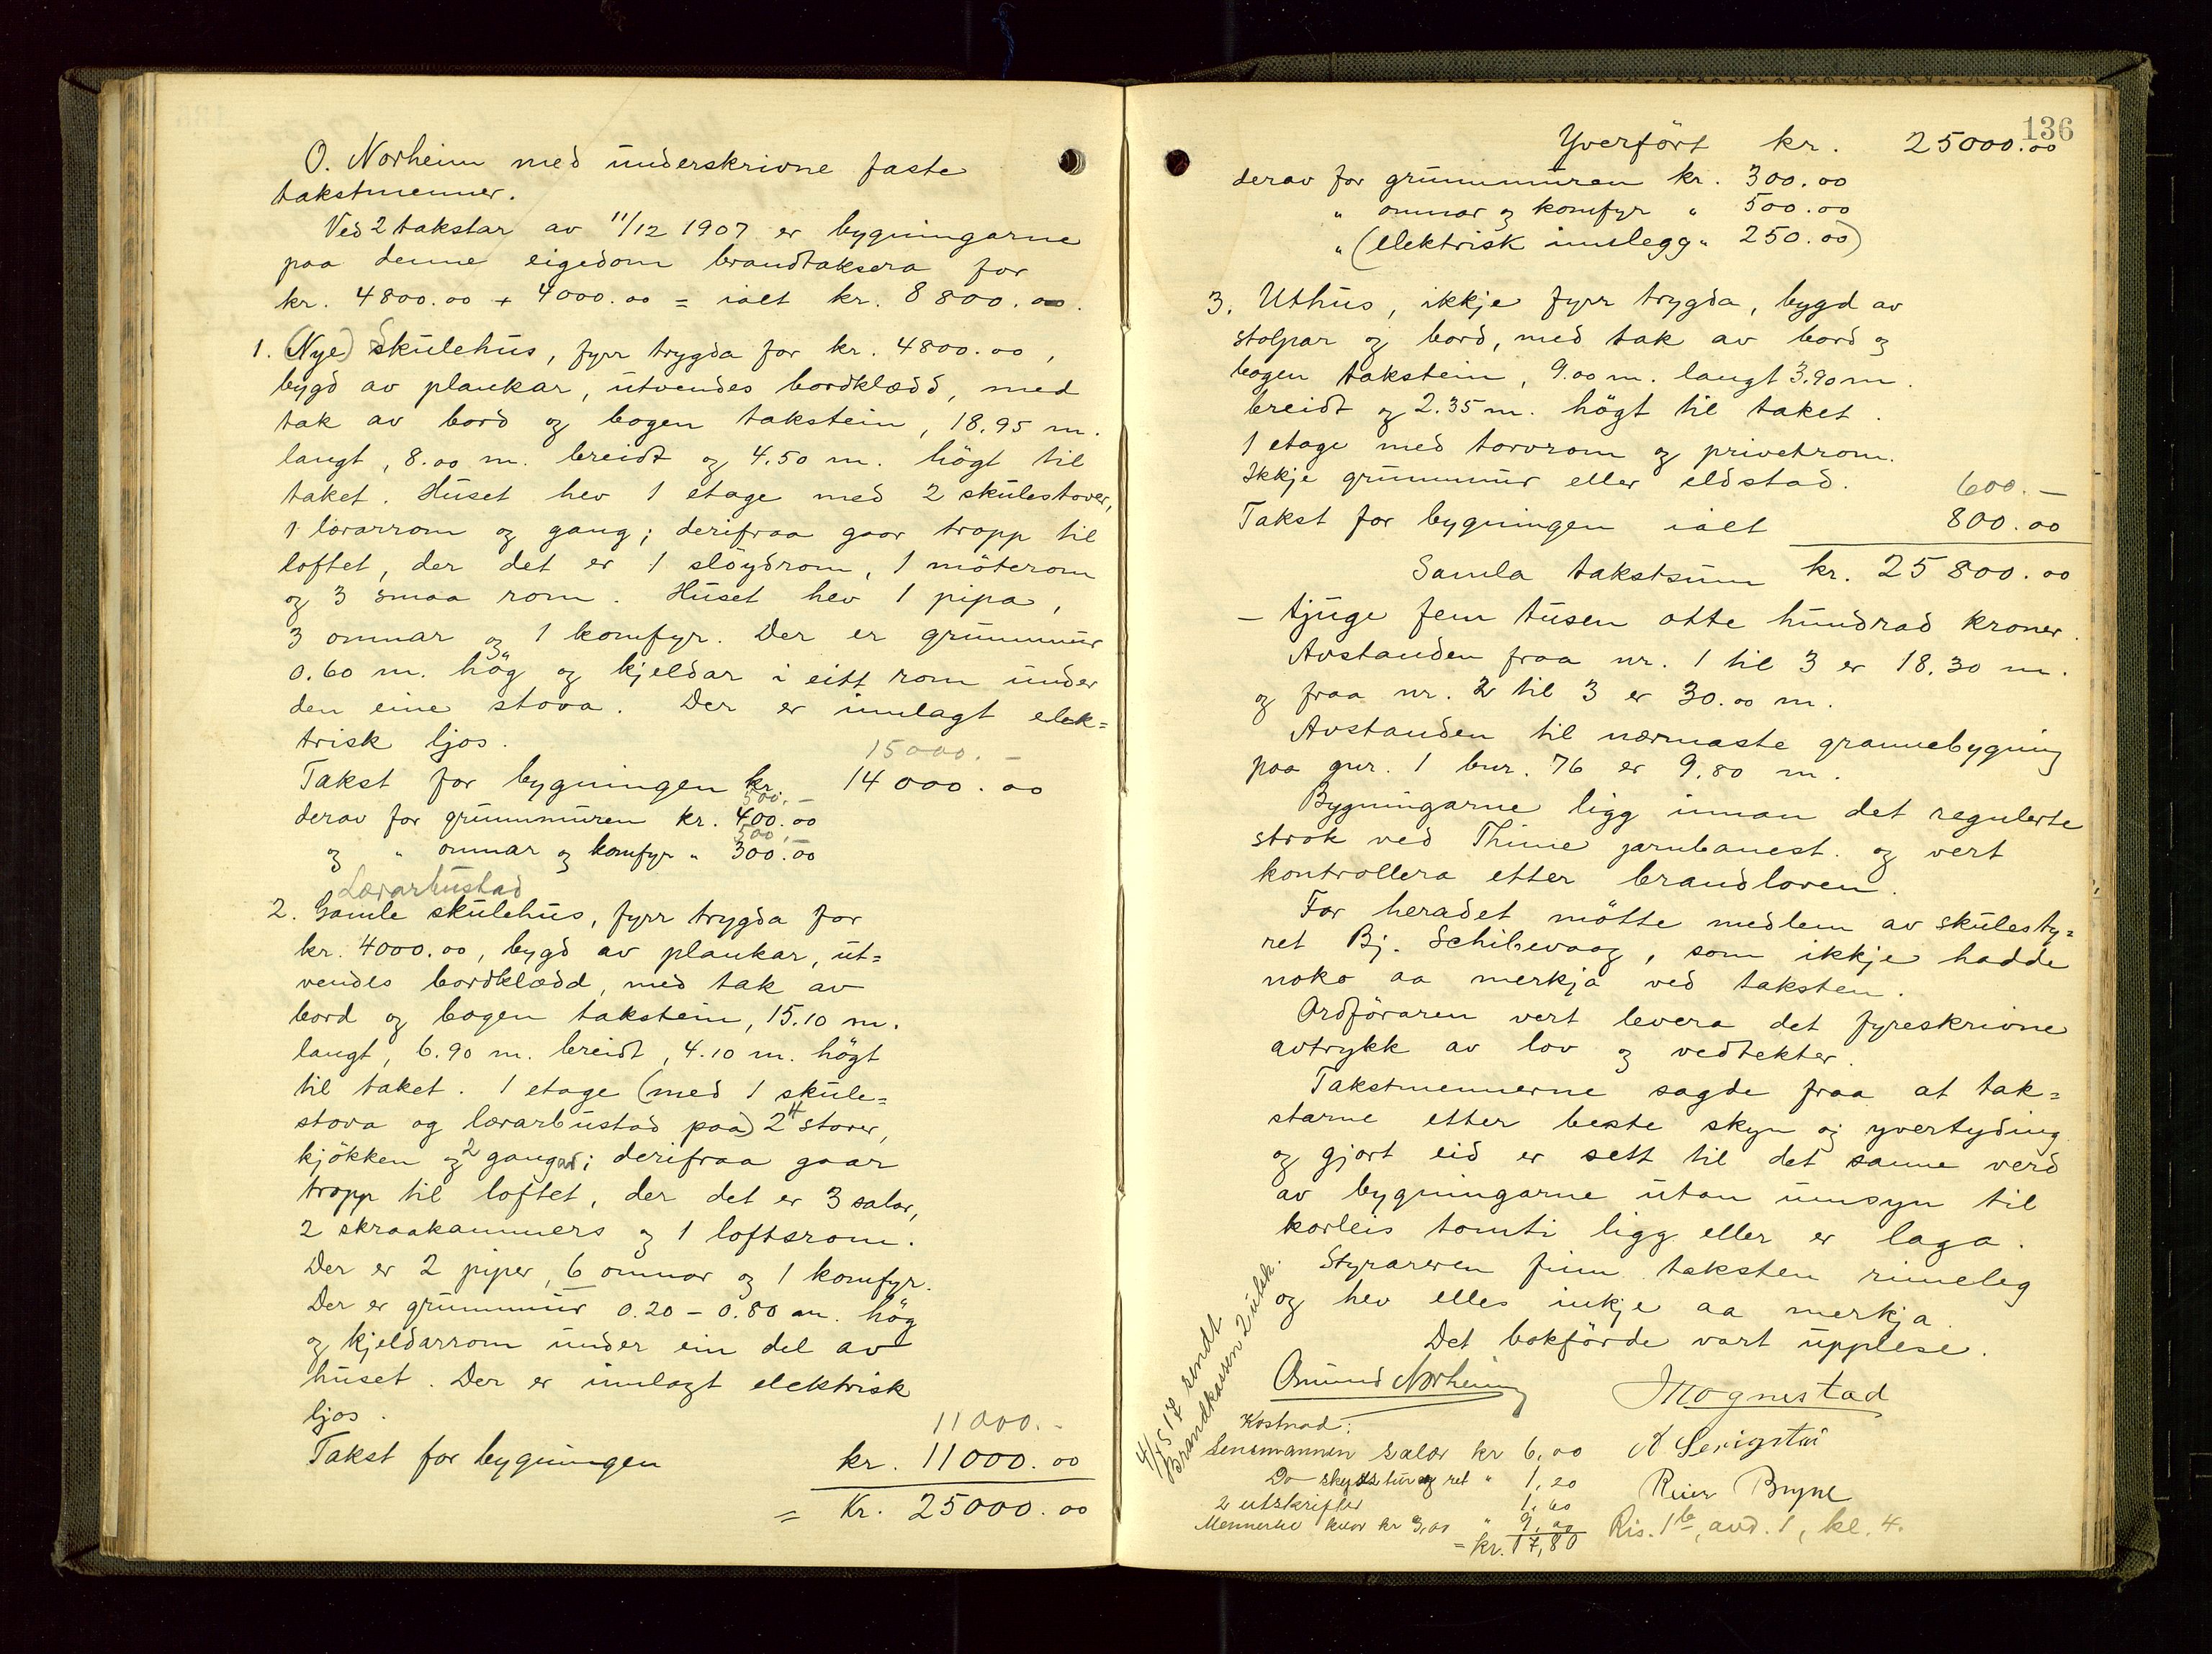 O. Norheim med underskrivne faste
takstmenner.
Ved 2 takstar av 11/12 1907 er bygningarne
paa denne eigedom brandtaksera for
kr. 4800.00 + 4000.00 = ialt kr. 8800.00.
1. (Nye) Skulehus, fyrr trygda for kr. 4800.00,
bygd av plankar, utvendes bordklædd, med
tak av bord og bogen takstein, 18.95 m.
langt, 8.00 m. breidt og 4.50 m. högt til
taket. Huset hev 1 etage med 2 skulestover,
1 lærarrom og gang; derifraa gaar tropp til
loftet, der det er 1 slöydrom, 1 möterom
og 3 smaa rom. Huset hev 1 pipa,
3 omnar og 1 komfyr. Der er grunnmur
0.60 m. hög og kjeldar i eitt rom under
den eine stova. Der er innlagt elek=
trisk ljos.
15000.-
Takst for bygningen kr. 14000.00
500.-
derav for grunnmuren kr. 400.00
500.-
og " omnar og komfyr " 300.00
Lærarbustad
2. Gamle skulehus, fyrr trygda for
kr. 4000.00, bygd av plankar, ut=
vendes bordklædd, med tak av
bord og bogen takstein, 15.10 m.
langt, 6.90 m. breidt, 4.10 m. högt
til taket. 1 etage (med 1 skule=
stova og lærarbustad paa) 2 4 stover,
kjökken og 2 gangar; derifraa gaar
tropp til loftet, der det er 3 salar,
2 skraakammers og 1 loftsrom.
Der er 2 piper, 6 omnar og 1 komfyr.
Der er grunnmur 0.20 - 0.80 m. hög
og kjeldarrom under ein del av
huset. Der er innlagt elektrisk
ljos.
11000.-
Takst for bygningen kr. 11000.00
= Kr. 25000.00
136
Yverfört kr. 25000.00
derav for grunnmuren kr. 300.00
" omnar og komfyr " 500.00
" (elektrisk innlegg " 250.00)
3. Uthus, ikkje fyrr trygda, bygd av
stolpar og bord, med tak av bord og
bogen takstein, 9.00 m. langt 3.90 m.
breidt og 2.35 m. högt til taket.
1 etage med torvrom og privetrom.
Ikkje grunnmur eller eldstad.
600.-
Takst for bygningen ialt 800.00
Samla takstsum kr. 25800.00
- tjuge fem tusen otte hundrad kroner.
Avstanden fraa nr. 1 til 3 er 18.30 m.
og fraa nr. 2 til 3 er 30.00 m.
Avstanden til nærmaste grannebygning
paa gnr. 1 bnr. 76 er 9.80 m.
Bygningarne ligg innan det regulerte
strok ved Thime jarnbanest. og vert
kontrollera etter brandloven.
For heradet mötte medlem av skulesty=
ret Bj. Schibevaag, som ikkje hadde
noko aa merkja ved taksten.
Ordföraren vert levera det fyreskrivne
avtrykk av lov og vedtekter.
Takstmennerne sagde fraa at tak=
starne etter beste skyn og yvertyding
og gjort eid er sett til det sanne verd
av bygningarne utan umsyn til
korleis tomti ligg eller er laga.
Styraren finn taksten rimeleg
og hev elles inkje aa merkja.
Det bokförde vart upplese.
Omund Norheim
J Mognestad
Kostnad:
Lensmannen salær kr 6,00
A Serigstad
Do skydstur og ret " 1,20
Reier Bryne
2 utskrifter 1,60
Mennerne kvar kr 3,00 " 9,00
= kr. 17,80
Ris. 1b, avd. 1, kl. 4.
4/5 17 sendt
Brandkassen 2 utsk.